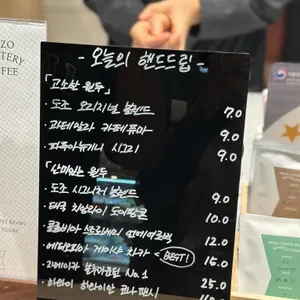 ZO
TERY
FFEE
- 오늘의 핸드드립 -
「고소한 원두」
· 도조 오리지널 블렌드 7.0
· 과테말라 카페퓨마 9.0
· 파푸아뉴기니 시그리 9.0
「산미있는 원두」
· 도조 시그니처 블렌드 9.0
· 태국 치앙라이 도이팡콘 10.0
· 콜롬비아 12.0
· 에티오피아 게이샤 차카 BEST! 15.0
· 자메이카 블루마운틴 No.1 25.0
· 하와이 하와이안 코나 팬시